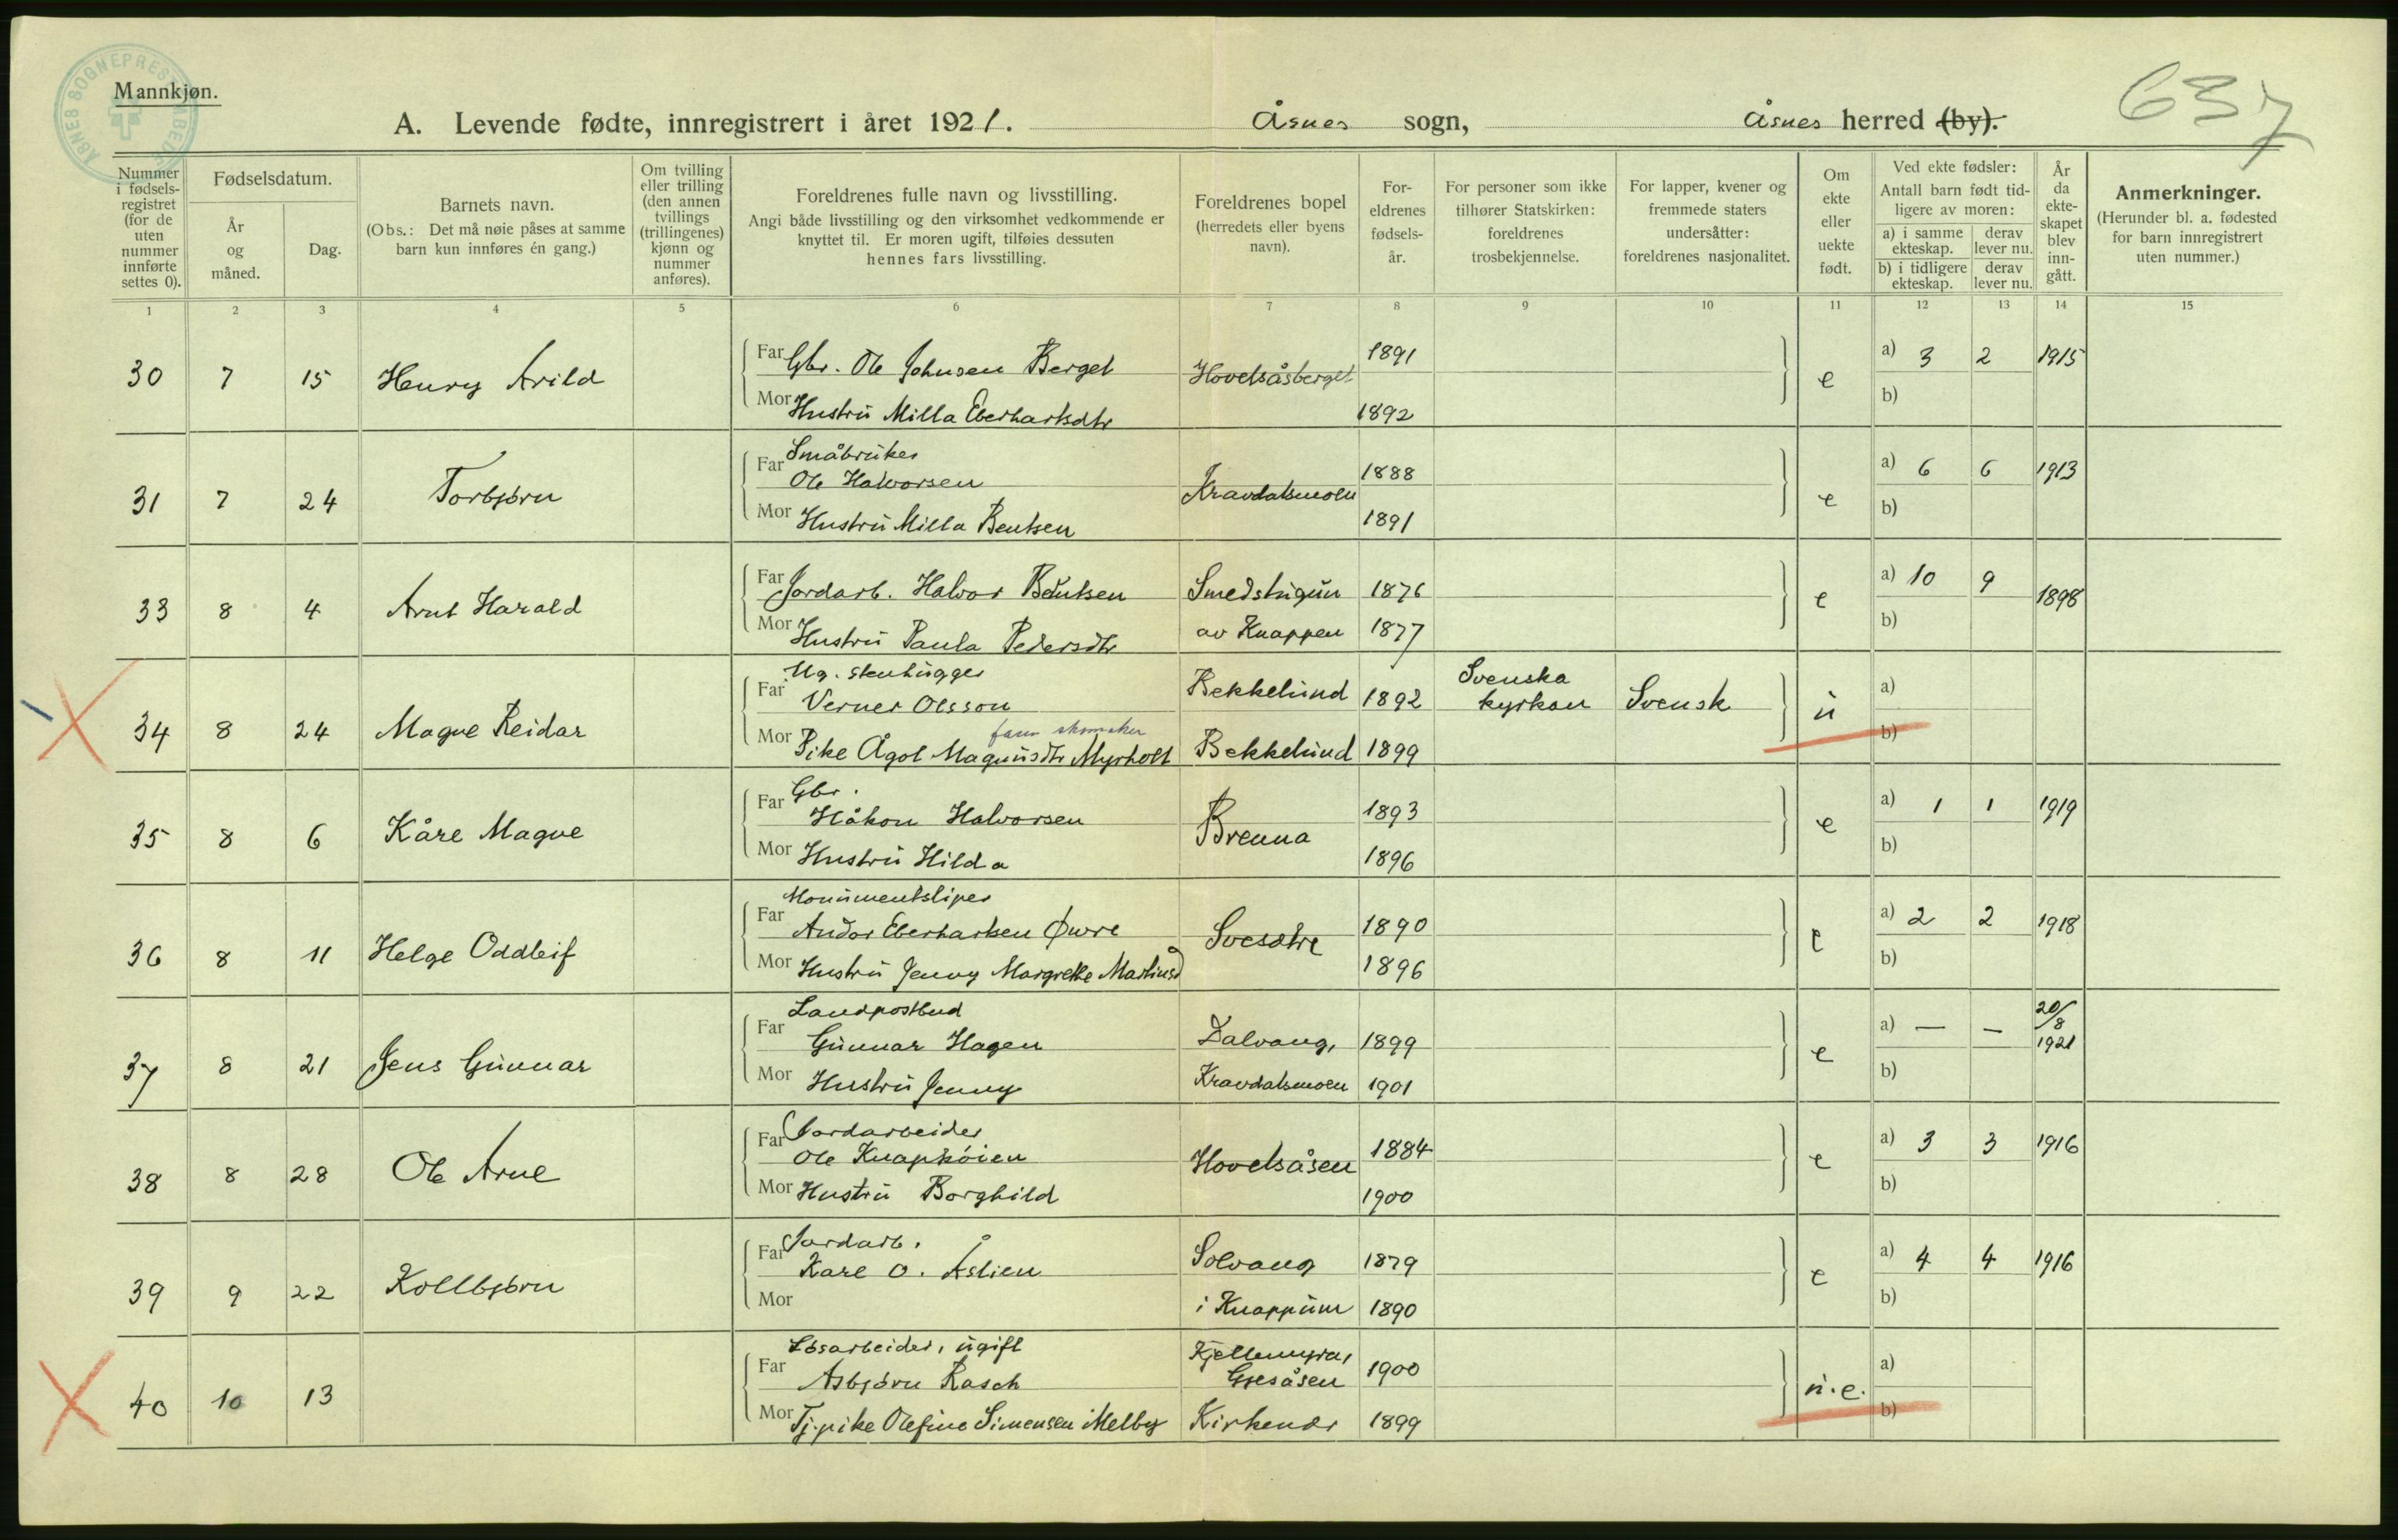 ÅSNES SOGNEPRESTEMBEDE
Mannkjøn.
637
A. Levende fødte, innregistrert i året 1921. Åsnes sogn, Åsnes herred (by).
Nummer i fødsels-registret (for de uten nummer innførte settes 0).
Fødselsdatum.
År og måned.
Dag.
Barnets navn.
(Obs.: Det må nøie påses at samme barn kun innføres én gang.)
Om tvilling eller trilling (den annen tvillings (trillingenes) kjønn og nummer anføres).
Foreldrenes fulle navn og livsstilling.
Angi både livsstilling og den virksomhet vedkommende er knyttet til. Er moren ugift, tilføies dessuten hennes fars livsstilling.
Foreldrenes bopel (herredets eller byens navn).
For-eldrenes fødsels-år.
For personer som ikke tilhører Statskirken: foreldrenes trosbekjennelse.
For lapper, kvener og fremmede staters undersåtter: foreldrenes nasjonalitet.
Om ekte eller uekte født.
Ved ekte fødsler:
Antall barn født tid-ligere av moren:
a) i samme ekteskap. derav lever nu.
b) i tidligere ekteskap. derav lever nu.
År da ekte-skapet blev inn-gått.
Anmerkninger.
(Herunder bl. a. fødested for barn innregistrert uten nummer.)
1 2 3 4 5 6 7 8 9 10 11 12 13 14 15
30 7 15 Henry Arild Far Gbr. Ole Johnsen Berget Hovelsåsberget 1891 e a) 3 2 1915
Mor Hustru Milla Eberhartsdtr 1892 b)
Småbruker
31 7 24 Torbjørn Far Ole Halvorsen Kravdalsmoen 1888 e a) 6 6 1913
Mor Hustru Milla Bentsen 1891 b)
33 8 4 Arnt Harald Far Jordarb. Halvor Bentsen Smedstugun 1876 e a) 10 9 1898
Mor Hustru Paula Pedersdtr av Knappen 1877 b)
Ug. stenhugger
34 8 24 Magne Reidar Far Verner Olsson Bekkelund 1892 Svenska kyrkan Svensk u a)
fars skomaker
Mor Pike Ågot Magnusdtr Myrholt Bekkelund 1899 b)
Gbr.
35 8 6 Kåre Magne Far Håkon Halvorsen Brenna 1893 e a) 1 1 1919
Mor Hustru Hilda 1896 b)
Monumentsliper
36 8 11 Helge Oddleif Far Andor Eberhartsen Øwre Svesætre 1890 e a) 2 2 1918
Mor Hustru Jenny Margrethe Martinsd 1896 b)
Landpostbud
37 8 21 Jens Gunnar Far Gunnar Hagen Dalvang, 1899 e a) — — 20/8 1921
Mor Hustru Jenny Kravdalsmoen 1901 b)
Jordarbeider
38 8 28 Ole Arne Far Ole Knaphøien Hovelsåsen 1884 e a) 3 3 1916
Mor Hustru Borghild 1900 b)
Jordarb.
39 9 22 Kollbjørn Far Karl O. Åslien Solvang 1879 e a) 4 4 1916
Mor i Knappum 1890 b)
Løsarbeider, ugift
40 10 13 Far Asbjørn Rasch Kjellmyra, Gjesåsen 1900 u.e. a)
Mor Tj.pike Olefine Simensen Melby Kirkenær 1899 b)